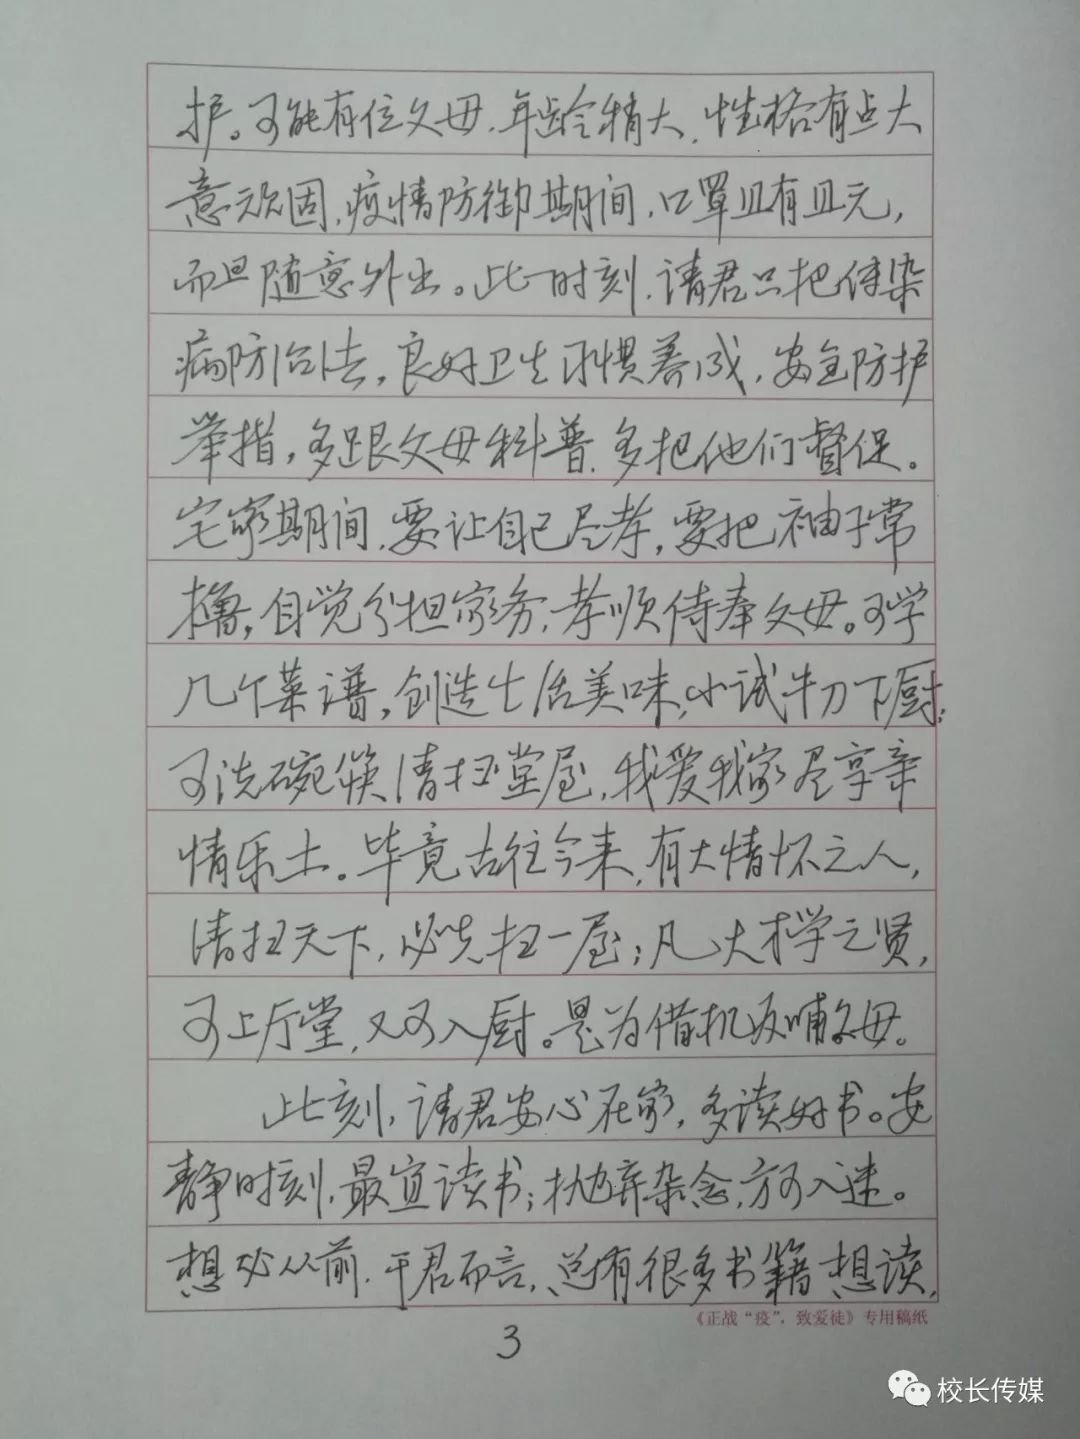 护。可能有位父母，年龄稍大，性格有点大
意顽固，疫情防御期间，口罩且有且无，
而且随意外出。此一时刻，请君只把传染
病防治法，良好卫生习惯养成，安全防护
举措，多跟父母科普，多把他们督促。
宅家期间，要让自己尽孝，要把袖子常
撸，自觉分担家务，孝顺侍奉父母。可学
几个菜谱，创造生活美味，小试牛刀下厨；
可洗碗筷清扫堂屋，我爱我家尽享亲
情乐土。毕竟古往今来，有大情怀之人，
清扫天下，必先扫一屋；凡大才学之贤，
可上厅堂，又可入厨。是为借机反哺父母。
此刻，请君安心在家，多读好书。安
静时刻，最宜读书；抛弃杂念，方可入迷。
想必从前，于君而言，总有很多书籍想读，
《正战“疫”，致爱徒》专用稿纸
3
校长传媒